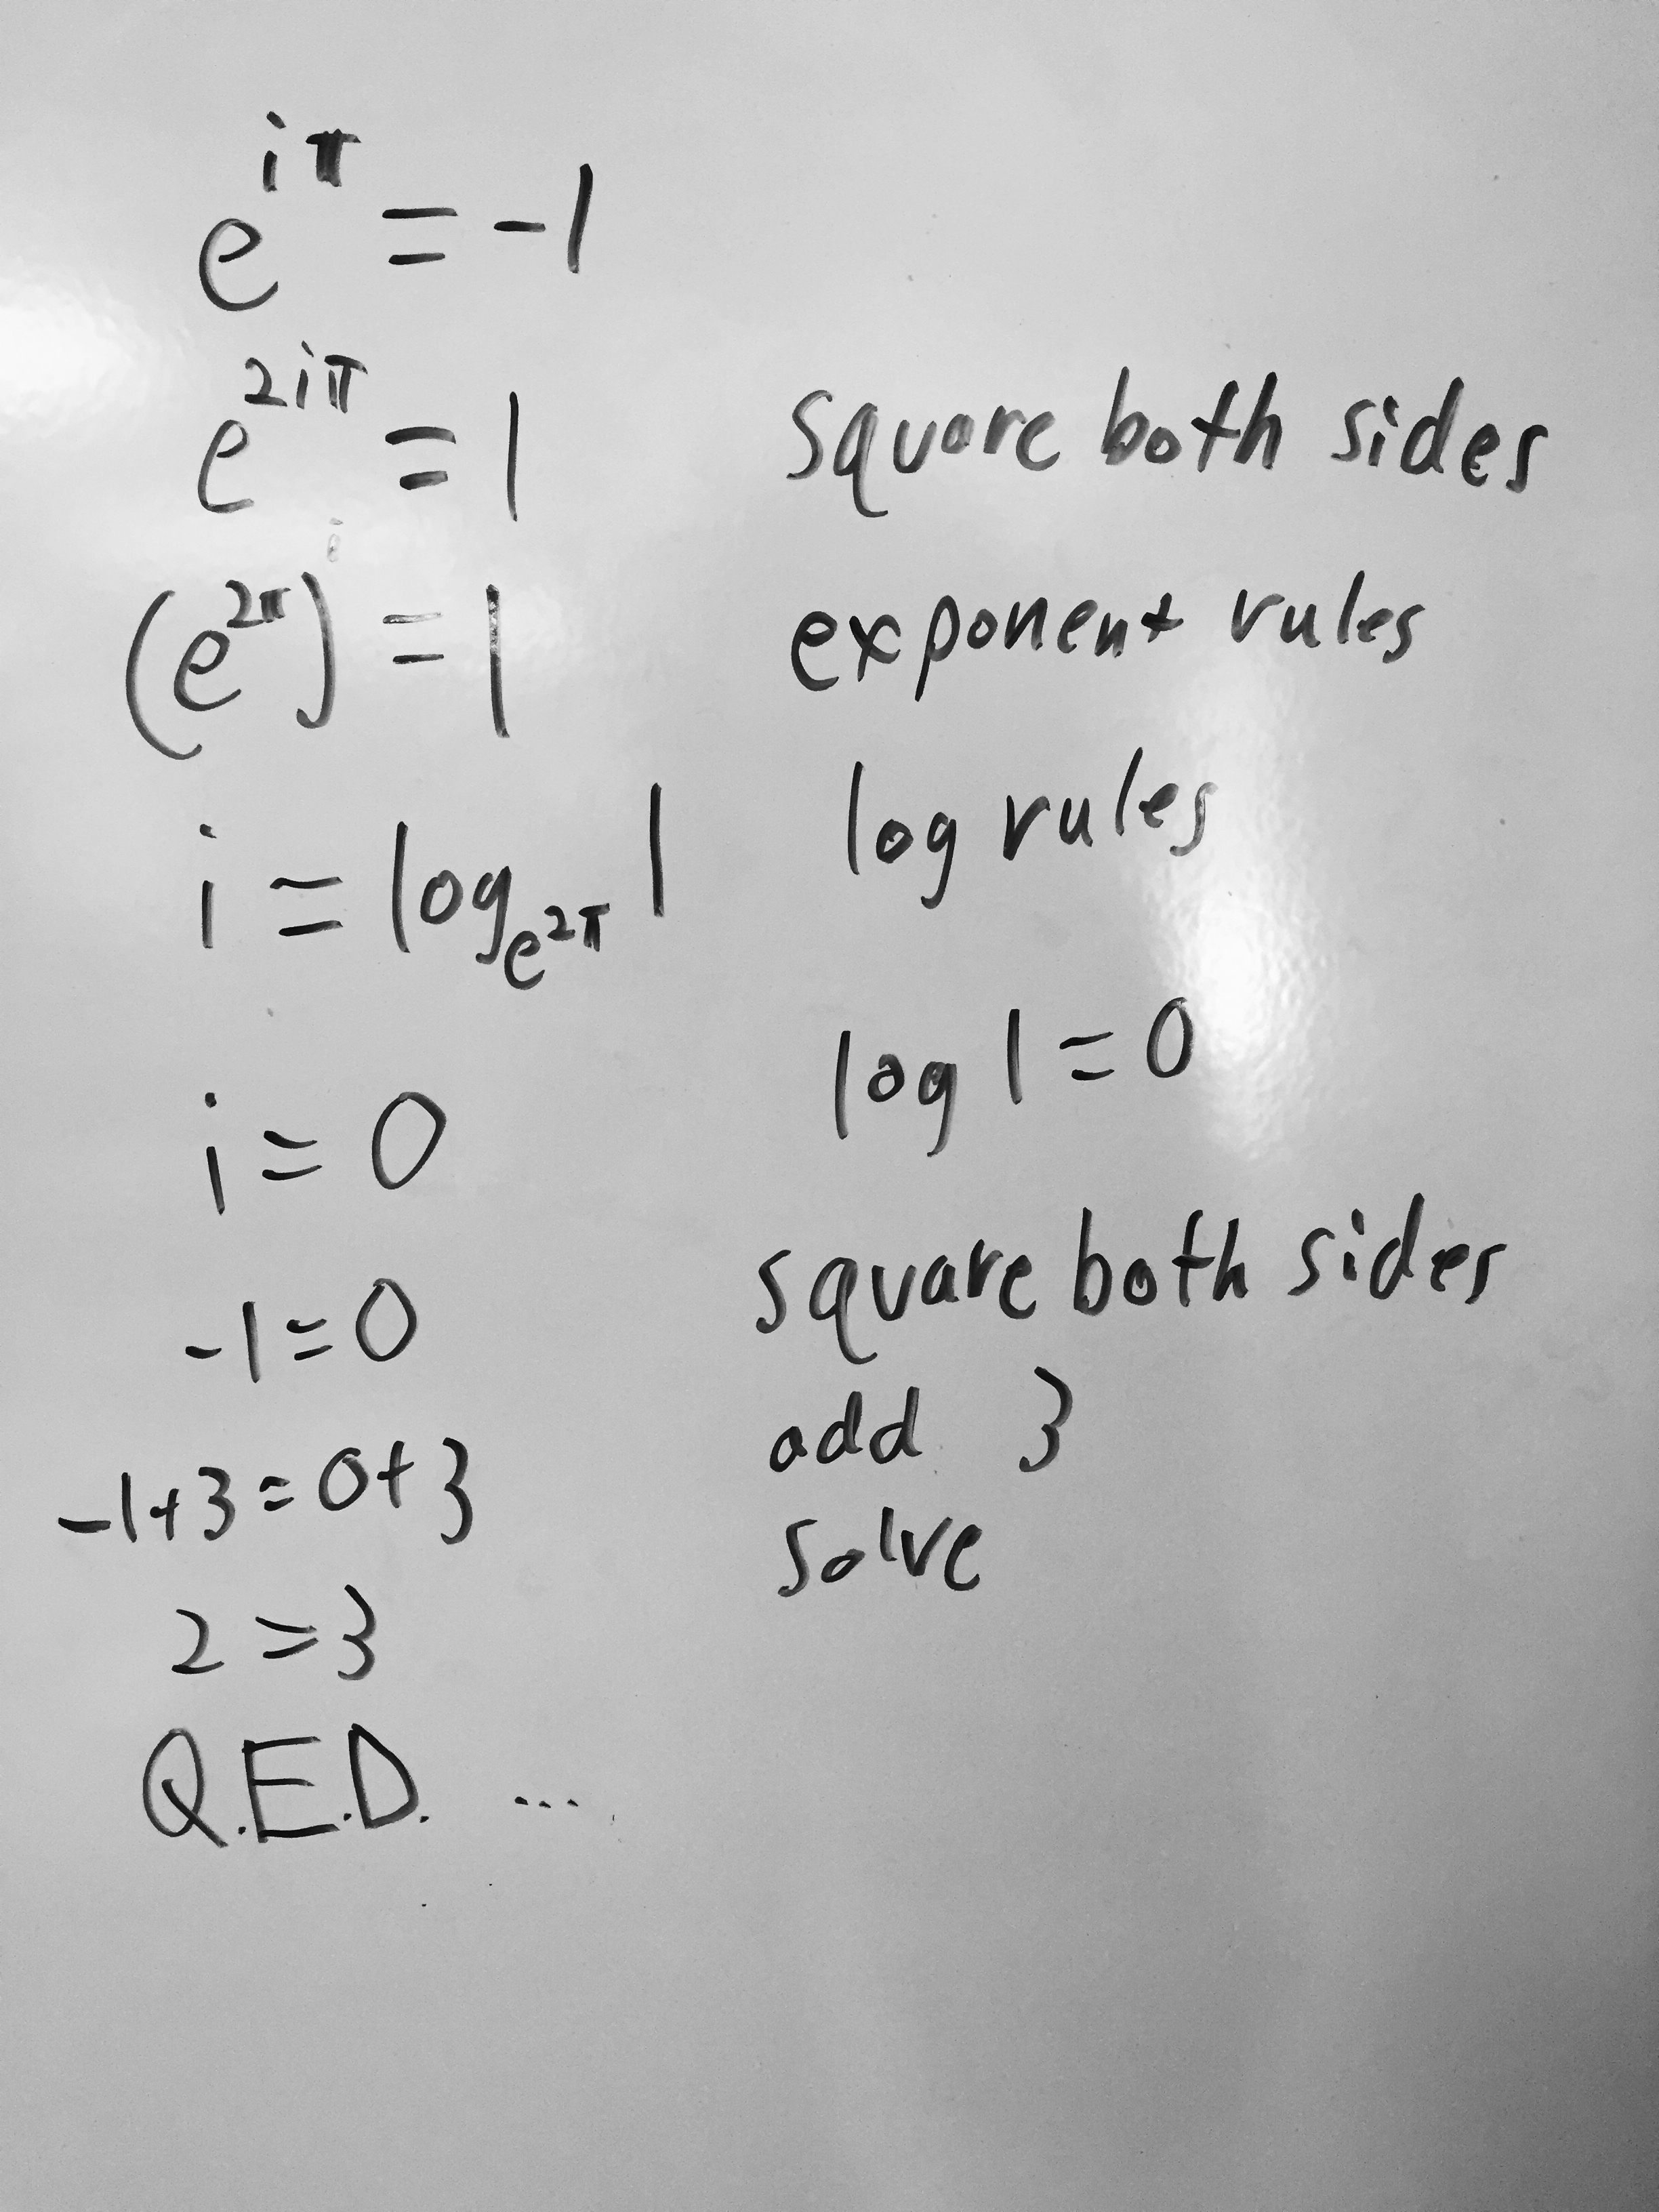 e^{iπ} = -1
e^{2iπ} = 1 square both sides
(e^{2π})^i = 1 exponent rules
i = log_{e^{2π}} 1 log rules
i = 0 log 1 = 0
-1 = 0 square both sides
-1+3 = 0+3 add 3
2 = 3 solve
Q.E.D. ...